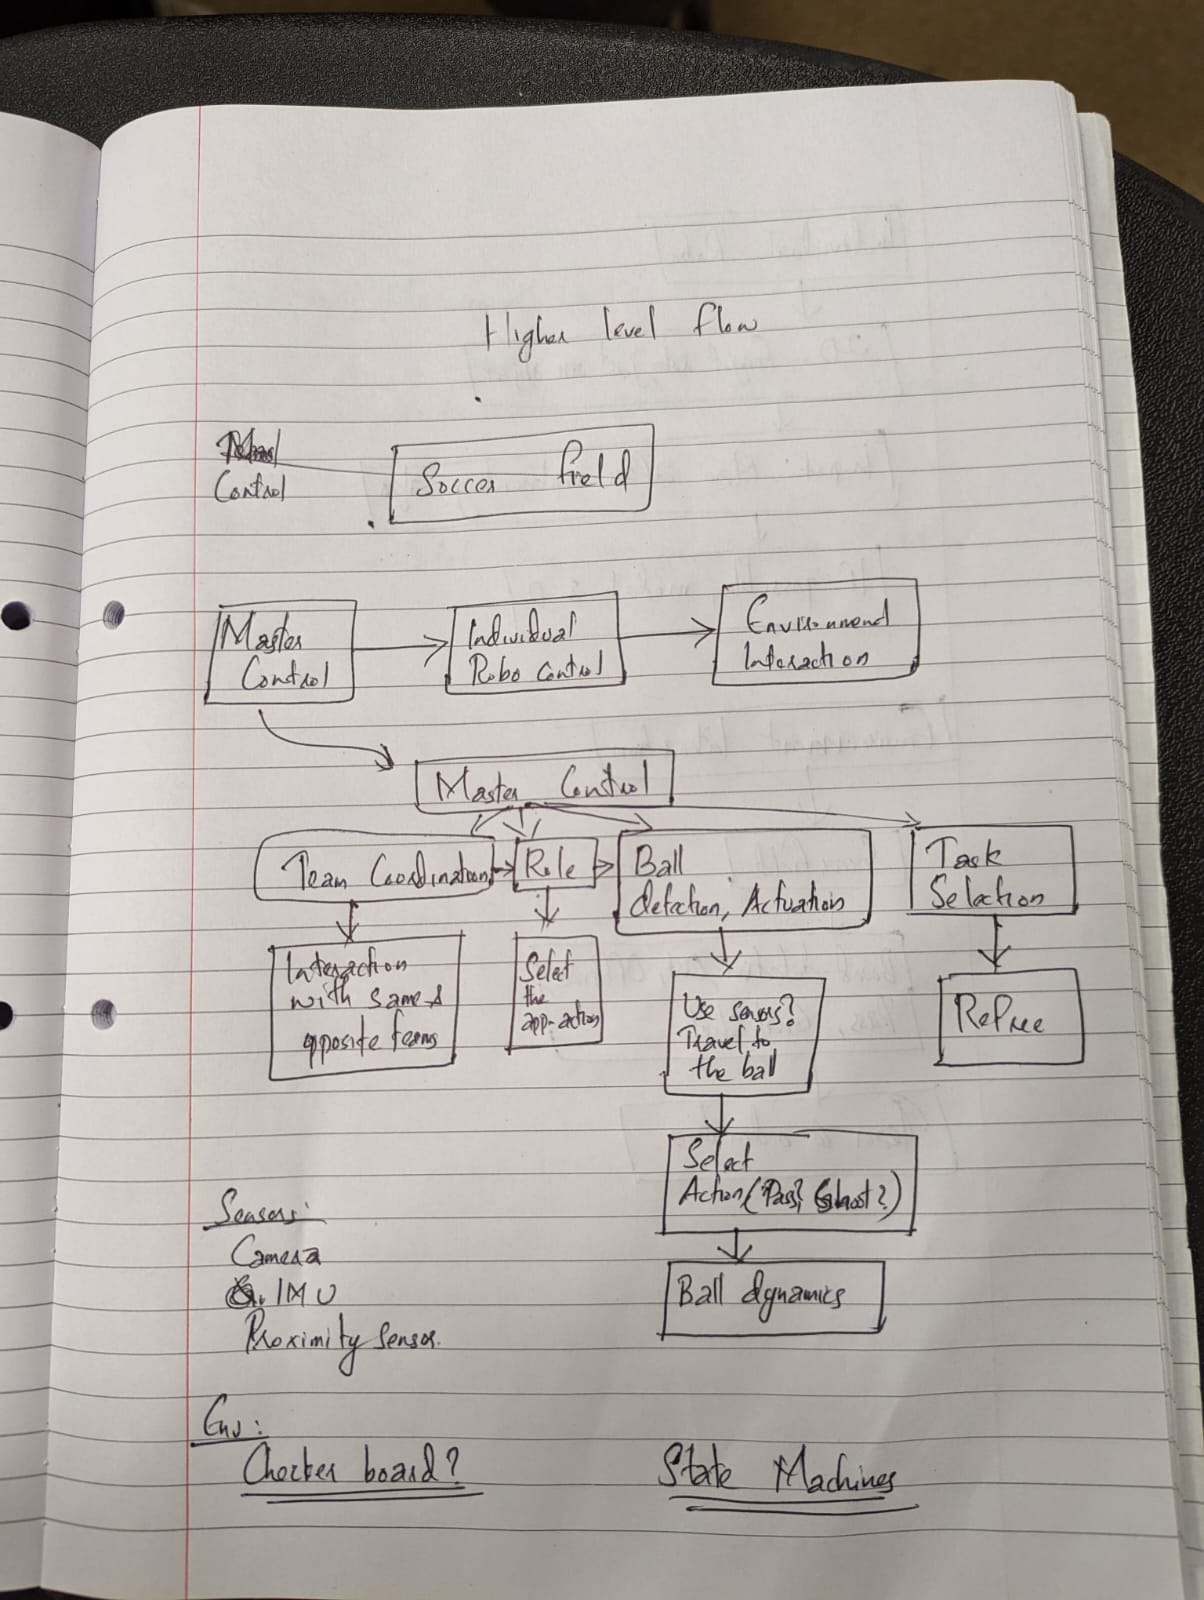 Higher level flow
Control
Soccer field
Master
Control
Individual
Robo control
Environmend
Interaction
Master Control
Team Coordination
Role
Ball
detection, Actuation
Task
Selection
Interaction
with same &
opposite teams
Select
the
app-action
Use sensors?
Travel to
the ball
Refree
Select
Action (Pass?, Shoot?)
Ball dynamics
Sensors:
Camera
IMU
Proximity Sensor.
Env:
Checker board?
State Machines